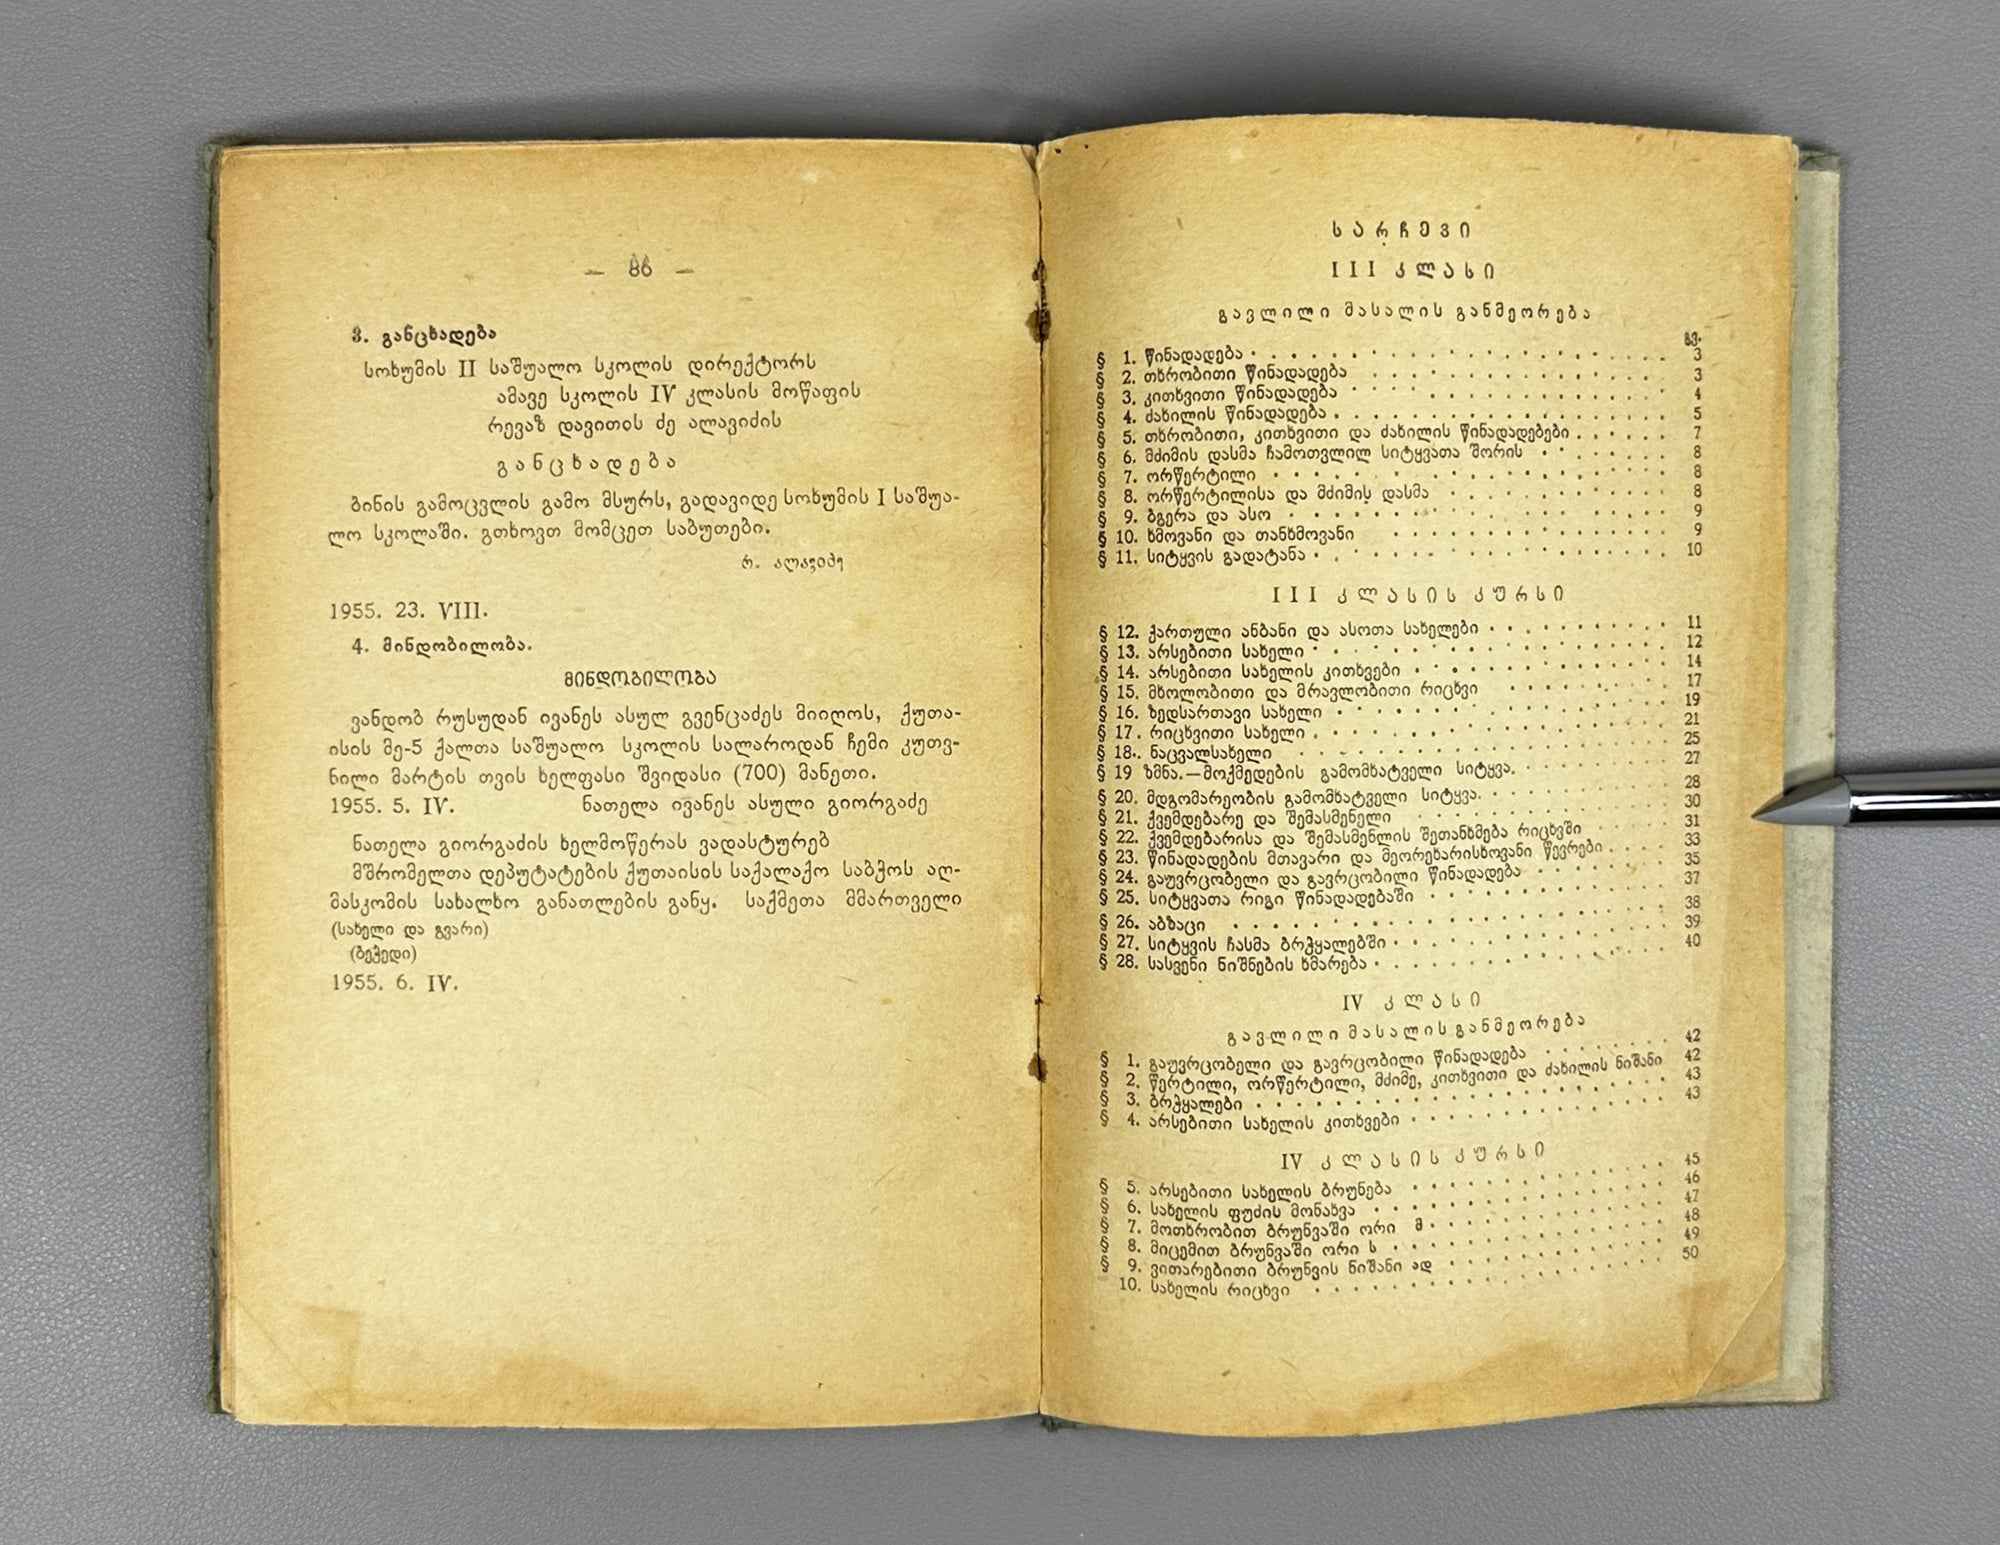 — 86 —
3. განცხადება
სოხუმის II საშუალო სკოლის დირექტორს
ამავე სკოლის IV კლასის მოწაფის
რევაზ დავითის ძე ალავიძის
განცხადება
ბინის გამოცვლის გამო მსურს, გადავიდე სოხუმის I საშუა-
ლო სკოლაში. გთხოვთ მომცეთ საბუთები.
რ. ალავიძე
1955. 23. VIII.
4. მინდობილობა.
მინდობილობა
ვანდობ რუსუდან ივანეს ასულ გვენცაძეს მიიღოს, ქუთა-
ისის მე-5 ქალთა საშუალო სკოლის სალაროდან ჩემი კუთვ-
ნილი მარტის თვის ხელფასი შვიდასი (700) მანეთი.
1955. 5. IV. ნათელა ივანეს ასული გიორგაძე
ნათელა გიორგაძის ხელმოწერას ვადასტურებ
მშრომელთა დეპუტატების ქუთაისის საქალაქო საბჭოს აღ-
მასკომის სახალხო განათლების განყ. საქმეთა მმართველი
(სახელი და გვარი)
(ბეჭედი)
1955. 6. IV.
სარჩევი
III კლასი
გავლილი მასალის განმეორება
გვ.
§ 1. წინადადება 3
§ 2. თხრობითი წინადადება 3
§ 3. კითხვითი წინადადება 4
§ 4. ძახილის წინადადება 5
§ 5. თხრობითი, კითხვითი და ძახილის წინადადებები 7
§ 6. მძიმის დასმა ჩამოთვლილ სიტყვათა შორის 8
§ 7. ორწერტილი 8
§ 8. ორწერტილისა და მძიმის დასმა 8
§ 9. ბგერა და ასო 9
§ 10. ხმოვანი და თანხმოვანი 9
§ 11. სიტყვის გადატანა 10
III კლასის კურსი
§ 12. ქართული ანბანი და ასოთა სახელები 11
§ 13. არსებითი სახელი 12
§ 14. არსებითი სახელის კითხვები 14
§ 15. მხოლობითი და მრავლობითი რიცხვი 17
§ 16. ზედსართავი სახელი 19
§ 17. რიცხვითი სახელი 21
§ 18.. ნაცვალსახელი 25
§ 19 ზმნა.—მოქმედების გამომხატველი სიტყვა. 27
§ 20. მდგომარეობის გამომხატველი სიტყვა. 28
§ 21. ქვემდებარე და შემასმენელი 30
§ 22. ქვემდებარისა და შემასმენლის შეთანხმება რიცხვში 31
§ 23. წინადადების მთავარი და მეორეხარისხოვანი წევრები 33
§ 24. გაუვრცობელი და გავრცობილი წინადადება 35
§ 25. სიტყვათა რიგი წინადადებაში 37
§ 26. აბზაცი 38
§ 27. სიტყვის ჩასმა ბრჭყალებში 39
§ 28. სასვენი ნიშნების ხმარება 40
IV კლასი
გავლილი მასალის განმეორება
§ 1. გაუვრცობელი და გავრცობილი წინადადება 42
§ 2. წერტილი, ორწერტილი, მძიმე, კითხვითი და ძახილის ნიშანი 42
§ 3. ბრჭყალები 43
§ 4. არსებითი სახელის კითხვები 43
IV კლასის კურსი
§ 5. არსებითი სახელის ბრუნება 45
§ 6. სახელის ფუძის მონახვა 46
§ 7. მოთხრობით ბრუნვაში ორი მ 47
§ 8. მიცემით ბრუნვაში ორი ს 48
§ 9. ვითარებითი ბრუნვის ნიშანი ად 49
10. სახელის რიცხვი 50